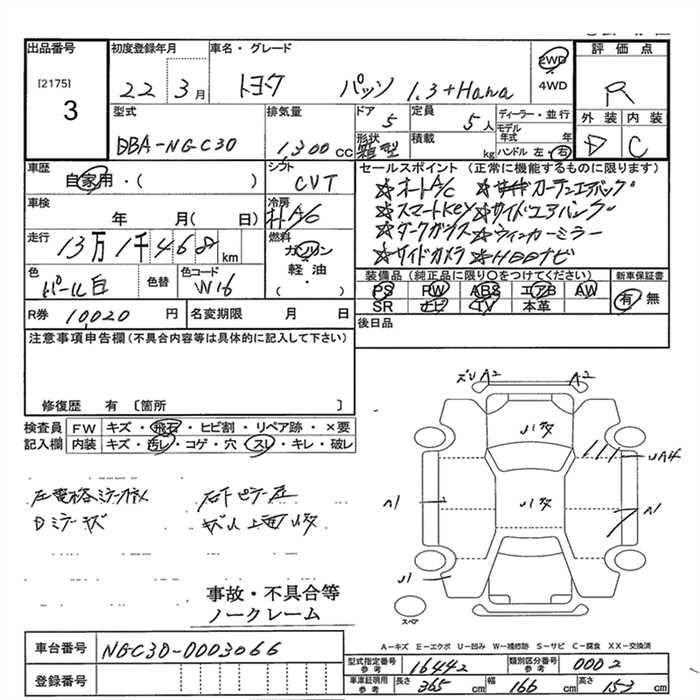 出品番号 初度登録年月 車名・グレード 評価点
[2175] 3
22 3月
トヨタ パッソ 1.3+Hana
2WD 4WD
R
外装 内装
D C
型式 排気量 ドア 定員 ディーラー・並行
DBA-NGC30 1,300 CC 5 5人
モデル年式 年
形状 積載 kg ハンドル 左・右
箱型
車歴 シフト セールスポイント (正常に機能するものに限ります)
自家用・( ) CVT
☆オートA/C ☆サイドカーテンエアバッグ
☆スマートKEY☆サイドエアバッグ
☆ダークガラス☆ウィンカーミラー
☆サイドカメラ☆HDDナビ
車検 冷房
年 月( 日) オートA/C
走行 燃料
13万1千468km ガソリン
軽油
( ・ )
色 色替 色コード
パール白 W16
装備品 (純正品に限り○をつけてください) 新車保証書
PS PW ABS エアB AW
SR ナビ TV 本革
有・無
R券 10,020円 名変期限 月 日
後日品
注意事項申告欄 (不具合内容等は具体的に記入して下さい)
修復歴 有 〔箇所 〕
検査員記入欄
FW キズ・飛石・ヒビ割・リペア跡・×要
内装 キズ・汚レ・コゲ・穴・スレ・キレ・破レ
ズリA2 A2
UA4
A1 A1
U1
スペア
事故・不具合等
ノークレーム
A−キズ E−エクボ U−凹み W−補修跡 S−サビ C−腐食 XX−交換済
車台番号 NGC30-0003066
登録番号
型式指定番号 参考 16442 類別区分番号 参考 0002
車庫証明用 参考 長さ 365cm 幅 166cm 高さ 153cm